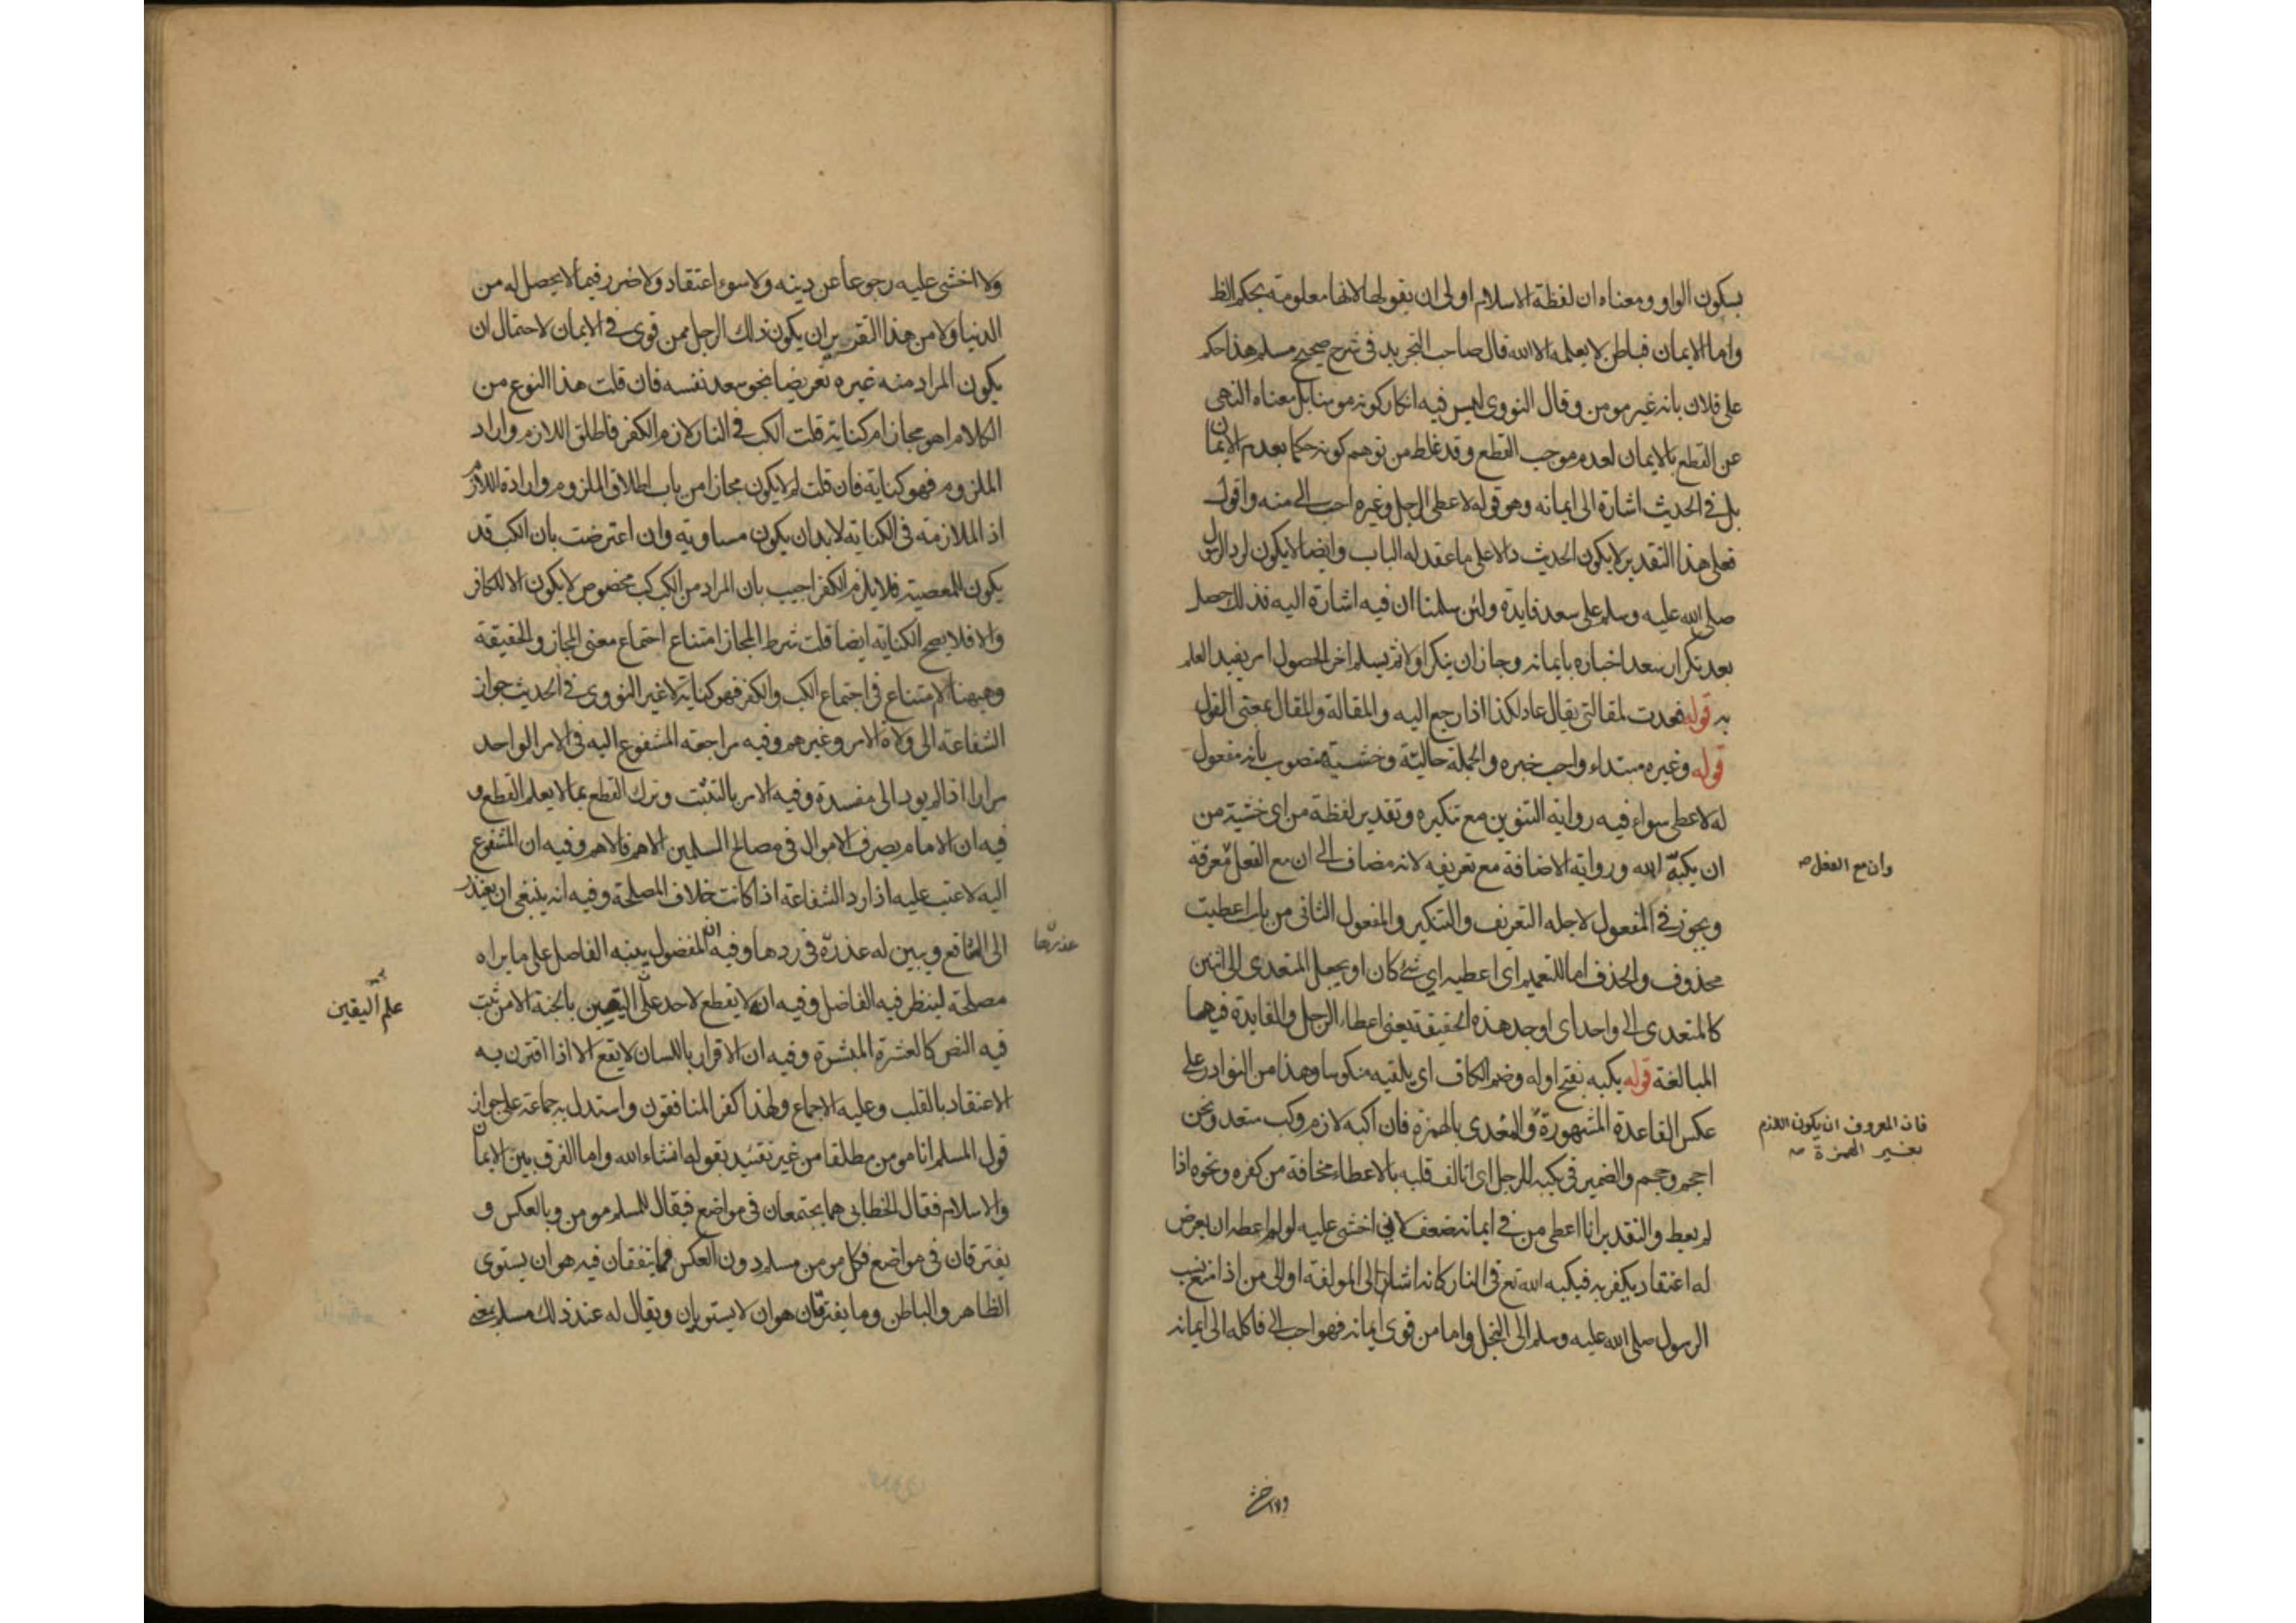 بسكون الواو ومعناه ان لفظة الاسلام اولى ان يقولها لانها معلومة بحكم الظا
واما الايمان فباطن لا يعلمه الا الله قال صاحب التحريد فى شرح صحيح مسلم هذا حكم
على فلان بانه غير مومن وقال النووى ليس فيه انكار كونه مومنا بل معناه النهى
عن القطع بالايمان لعدم موجب القطع وقد غلط من توهم كونه حكما بعدم الايمان
بل فى الحديث اشارة الى ايمانه وهو قوله لاعطى الرجل وغيره احب الى منه واقول
فعلى هذا التقدير لا يكون الحديث دالا على ما عقد له الباب وايضا لا يكون لرد الرسول
صلى الله عليه وسلم على سعد فايدة ولئن سلمنا ان فيه اشارة اليه فذلك حصل
بعد تكرار سعد اخباره بايمانه وجاز ان ينكر اولا ثم يسلم اخرا لحصول امر يفيد العلم
به قوله فعدت لمقالتى يقال عاد لكذا اذا رجع اليه والمقالة والمقال بمعنى القول
قوله وغيره مبتداء واحب خبره والجملة حالية وخشية منصوب بانه مفعول
له لاعطى سواء فيه رواية التنوين مع تنكيره وتقدير لفظة من اى خشية من
ان يكبه الله ورواية الاضافة مع تعريفه لانه مضاف الى ان مع الفعل معرفة
وان مع الفعل صح
ويجوز فى المفعول لاجله التعريف والتنكير والمفعول الثانى من باب اعطيت
محذوف والحذف اما للتعميم اى اعطيه اي شئ كان او يجعل المتعدى الى اثنين
كالمتعدى الى واحد اى اوجد هذه الحقيقة يعنى اعطاء الرجل والفايدة فيهما
المبالغة قوله يكبه بفتح اوله وضم الكاف اى يلقيه منكوسا وهذا من النوادر على
عكس القاعدة المشهورة والمعدى بالهمزة فان اكبه لازم وكب متعد ونحن
فان المعروف ان يكون اللازم
بغير الهمزة صح
احجم وحجم والضمير فى يكبه للرجل اى اتالف قلبه بالاعطاء مخافة من كفره ونحوه اذا
لم يعط والتقدير انا اعطى من فى ايمانه ضعف لانى اخشى عليه لو لم اعطه ان يعرض
له اعتقاد يكفر به فيكبه الله تع فى النار كانه اشار الى المولفة او الى من اذا منع نسب
الرسول صلى الله عليه وسلم الى البخل واما من قوى ايمانه فهو احب الى فاكله الى ايمانه
ولا اخش
ولا اخشى عليه رجوعا عن دينه ولا سوء اعتقاد ولا ضرر فيما لا يحصل له من
الدنيا ولا من هذا التقرير ان يكون ذلك الرجل ممن قوى فى الايمان لاحتمال ان
يكون المراد منه غيره تعريضا بنحو سعد نفسه فان قلت هذا النوع من
الكلام اهو مجاز ام كناية قلت الكب فى النار لازم الكفر فاطلق اللازم واراد
الملزوم فهو كناية فان قلت لم لا يكون مجازا من باب اطلاق الملزوم وارادة اللازم
اذ الملازمة فى الكناية لا بد ان يكون مساوية وان اعترضت بان الكب قد
يكون للمعصية فلا يلزم الكفر اجيب بان المراد من الكب كب مخصوص لا يكون الا للكافر
والا فلا يصح الكناية ايضا قلت شرط المجاز امتناع اجتماع معنى المجاز والحقيقة
وههنا لا امتناع فى اجتماع الكب والكفر فهو كناية لا غير النووى فى الحديث جواز
الشفاعة الى ولاة الامر وغيرهم وفيه مراجعة المشفوع اليه فى الامر الواحد
مرارا اذا لم يود الى مفسدة وفيه الامر بالتثبت وترك القطع بما لا يعلم القطع و
فيه ان الامام يصرف الاموال فى مصالح المسلمين الاهم فالاهم وفيه ان المشفوع
اليه لا عتب عليه اذا رد الشفاعة اذا كانت خلاف المصلحة وفيه انه ينبغى ان يعتذر
الى الشافع ويبين له عذره فى ردها وفيه ان المفضول ينبه الفاضل على ما يراه
عذرها
مصلحة لينظر فيه الفاضل وفيه انه لا يقطع لاحد على اليقين بالجنة الا من ثبت
علم اليقين
فيه النص كالعشرة المبشرة وفيه ان الاقرار باللسان لا يقع الا اذا اقترن به
الاعتقاد بالقلب وعليه الاجماع ولهذا كفر المنافقون واستدل به جماعة على جواز
قول المسلم انا مومن مطلقا من غير تقييد بقوله انشاء الله واما الفرق بين الايمان
والاسلام فقال الخطابى هما يجتمعان فى مواضع فيقال للمسلم مومن وبالعكس و
يفترقان فى مواضع فكل مومن مسلم دون العكس فما يتفقان فيه هو ان يستوى
الظاهر والباطن وما يفترقان هو ان لا يستويان ويقال له عند ذلك مسلم يعنى